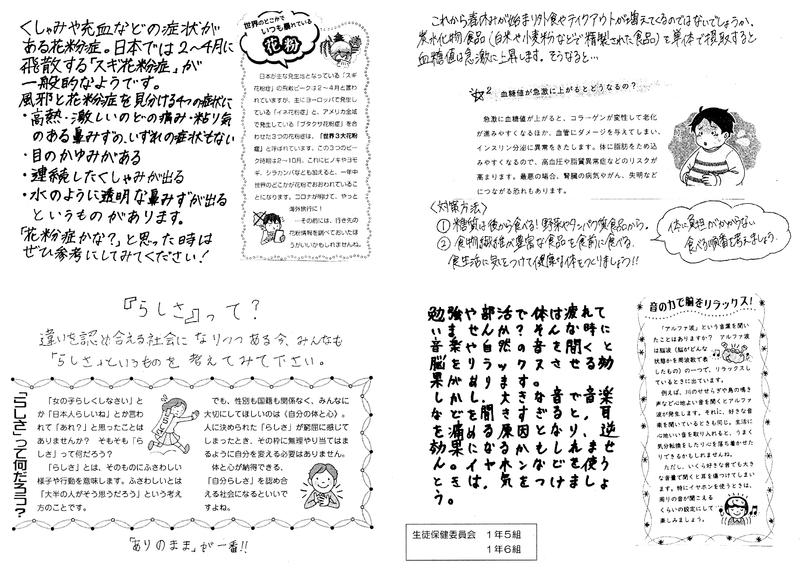 くしゃみや充血などの症状が
ある花粉症。日本では2～4月に
飛散する「スギ花粉症」が
一般的なようです。
風邪と花粉症を見分ける4つの症状に
・高熱・激しいのどの痛み・粘り気
のある鼻みずの、いずれの症状もない
・目のかゆみがある
・連続したくしゃみが出る
・水のように透明な鼻みずが出る
というものがあります。
「花粉症かな?」と思った時は
ぜひ参考にしてみてください!
世界のどこかで
いつも暴れている
花粉
日本が主な発生地となっている「スギ
花粉症」の飛散ピークは2～4月と言わ
れていますが、主にヨーロッパで発生し
ている「イネ花粉症」と、アメリカ全域
で発生している「ブタクサ花粉症」を合
わせた3つの花粉症は、「世界3大花粉
症」と呼ばれています。この3つのピー
ク時期は2～10月。これにヒノキやヨモ
ギ、シラカンバなども加えると、一年中
世界のどこかが花粉でおおわれているこ
とになります。コロナが明けて、やっと
海外旅行に!
…その前には、行き先の
花粉情報を調べておいたほ
うがいいかもしれませんね。
これから春休みが始まり外食やテイクアウトが増えてくるのではないでしょうか。
炭水化物食品(白米や小麦粉などで精製された食品)を単体で摂取すると
血糖値は急激に上昇します。そうなると…
2 血糖値が急激に上がるとどうなるの?
急激に血糖値が上がると、コラーゲンが変性して老化
が進みやすくなるほか、血管にダメージを与えてしまい、
インスリン分泌に異常をきたします。体に脂肪をため込
みやすくなるので、高血圧や脂質異常症などのリスクが
高まります。最悪の場合、腎臓の病気やがん、失明など
につながる恐れもあります。
〈対策方法〉
① 糖質は後から食べる!野菜やタンパク質食品から。
② 食物繊維が豊富な食品を食前に食べる。
食生活に気をつけて健康な体をつくりましょう!!
体に負担がかからない
食べる順番を考えましょう。
『らしさ』って?
違いを認め合える社会になりつつある今、みんなも
「らしさ」というものを考えてみて下さい。
「らしさ」って何だろう?
「女の子らしくしなさい」と
か「日本人らしいね」とか言わ
れて「あれ?」と思ったことは
ありませんか? そもそも「ら
しさ」って何だろう?
「らしさ」とは、そのものにふさわしい
様子や行動を意味します。ふさわしいとは
「大半の人がそう思うだろう」という考え
方のことです。
でも、性別も国籍も関係なく、みんなに
大切にしてほしいのは〈自分の体と心〉。
人に決められた「らしさ」が窮屈に感じて
しまったとき、その枠に無理やり当てはま
るように自分を変える必要はありません。
体と心が納得できる、
「自分らしさ」を認め合
える社会になるといいで
すよね。
「ありのまま」が一番!!
音の力で脳をリラックス!
「アルファ波」という言葉を聞い
たことはありますか? アルファ波
は脳波(脳がどんな
状態かを周波数で表
したもの)の一つで、リラックスし
ているときに出ています。
例えば、川のせせらぎや鳥の鳴き
声など心地よい音を聞くとアルファ
波が発生します。それに、好きな音
楽を聞いているときも同じ。生活に
心地いい音を取り入れると、うまく
気分転換をしたり心を落ち着かせた
りできるかもしれませんね。
ただし、いくら好きな音でも大き
な音量で聞くと耳を傷つけてしまい
ます。特にイヤホンを使うときは、
周りの音が聞こえる
くらいの設定にして
楽しみましょう。
生徒保健委員会 1年5組
1年6組